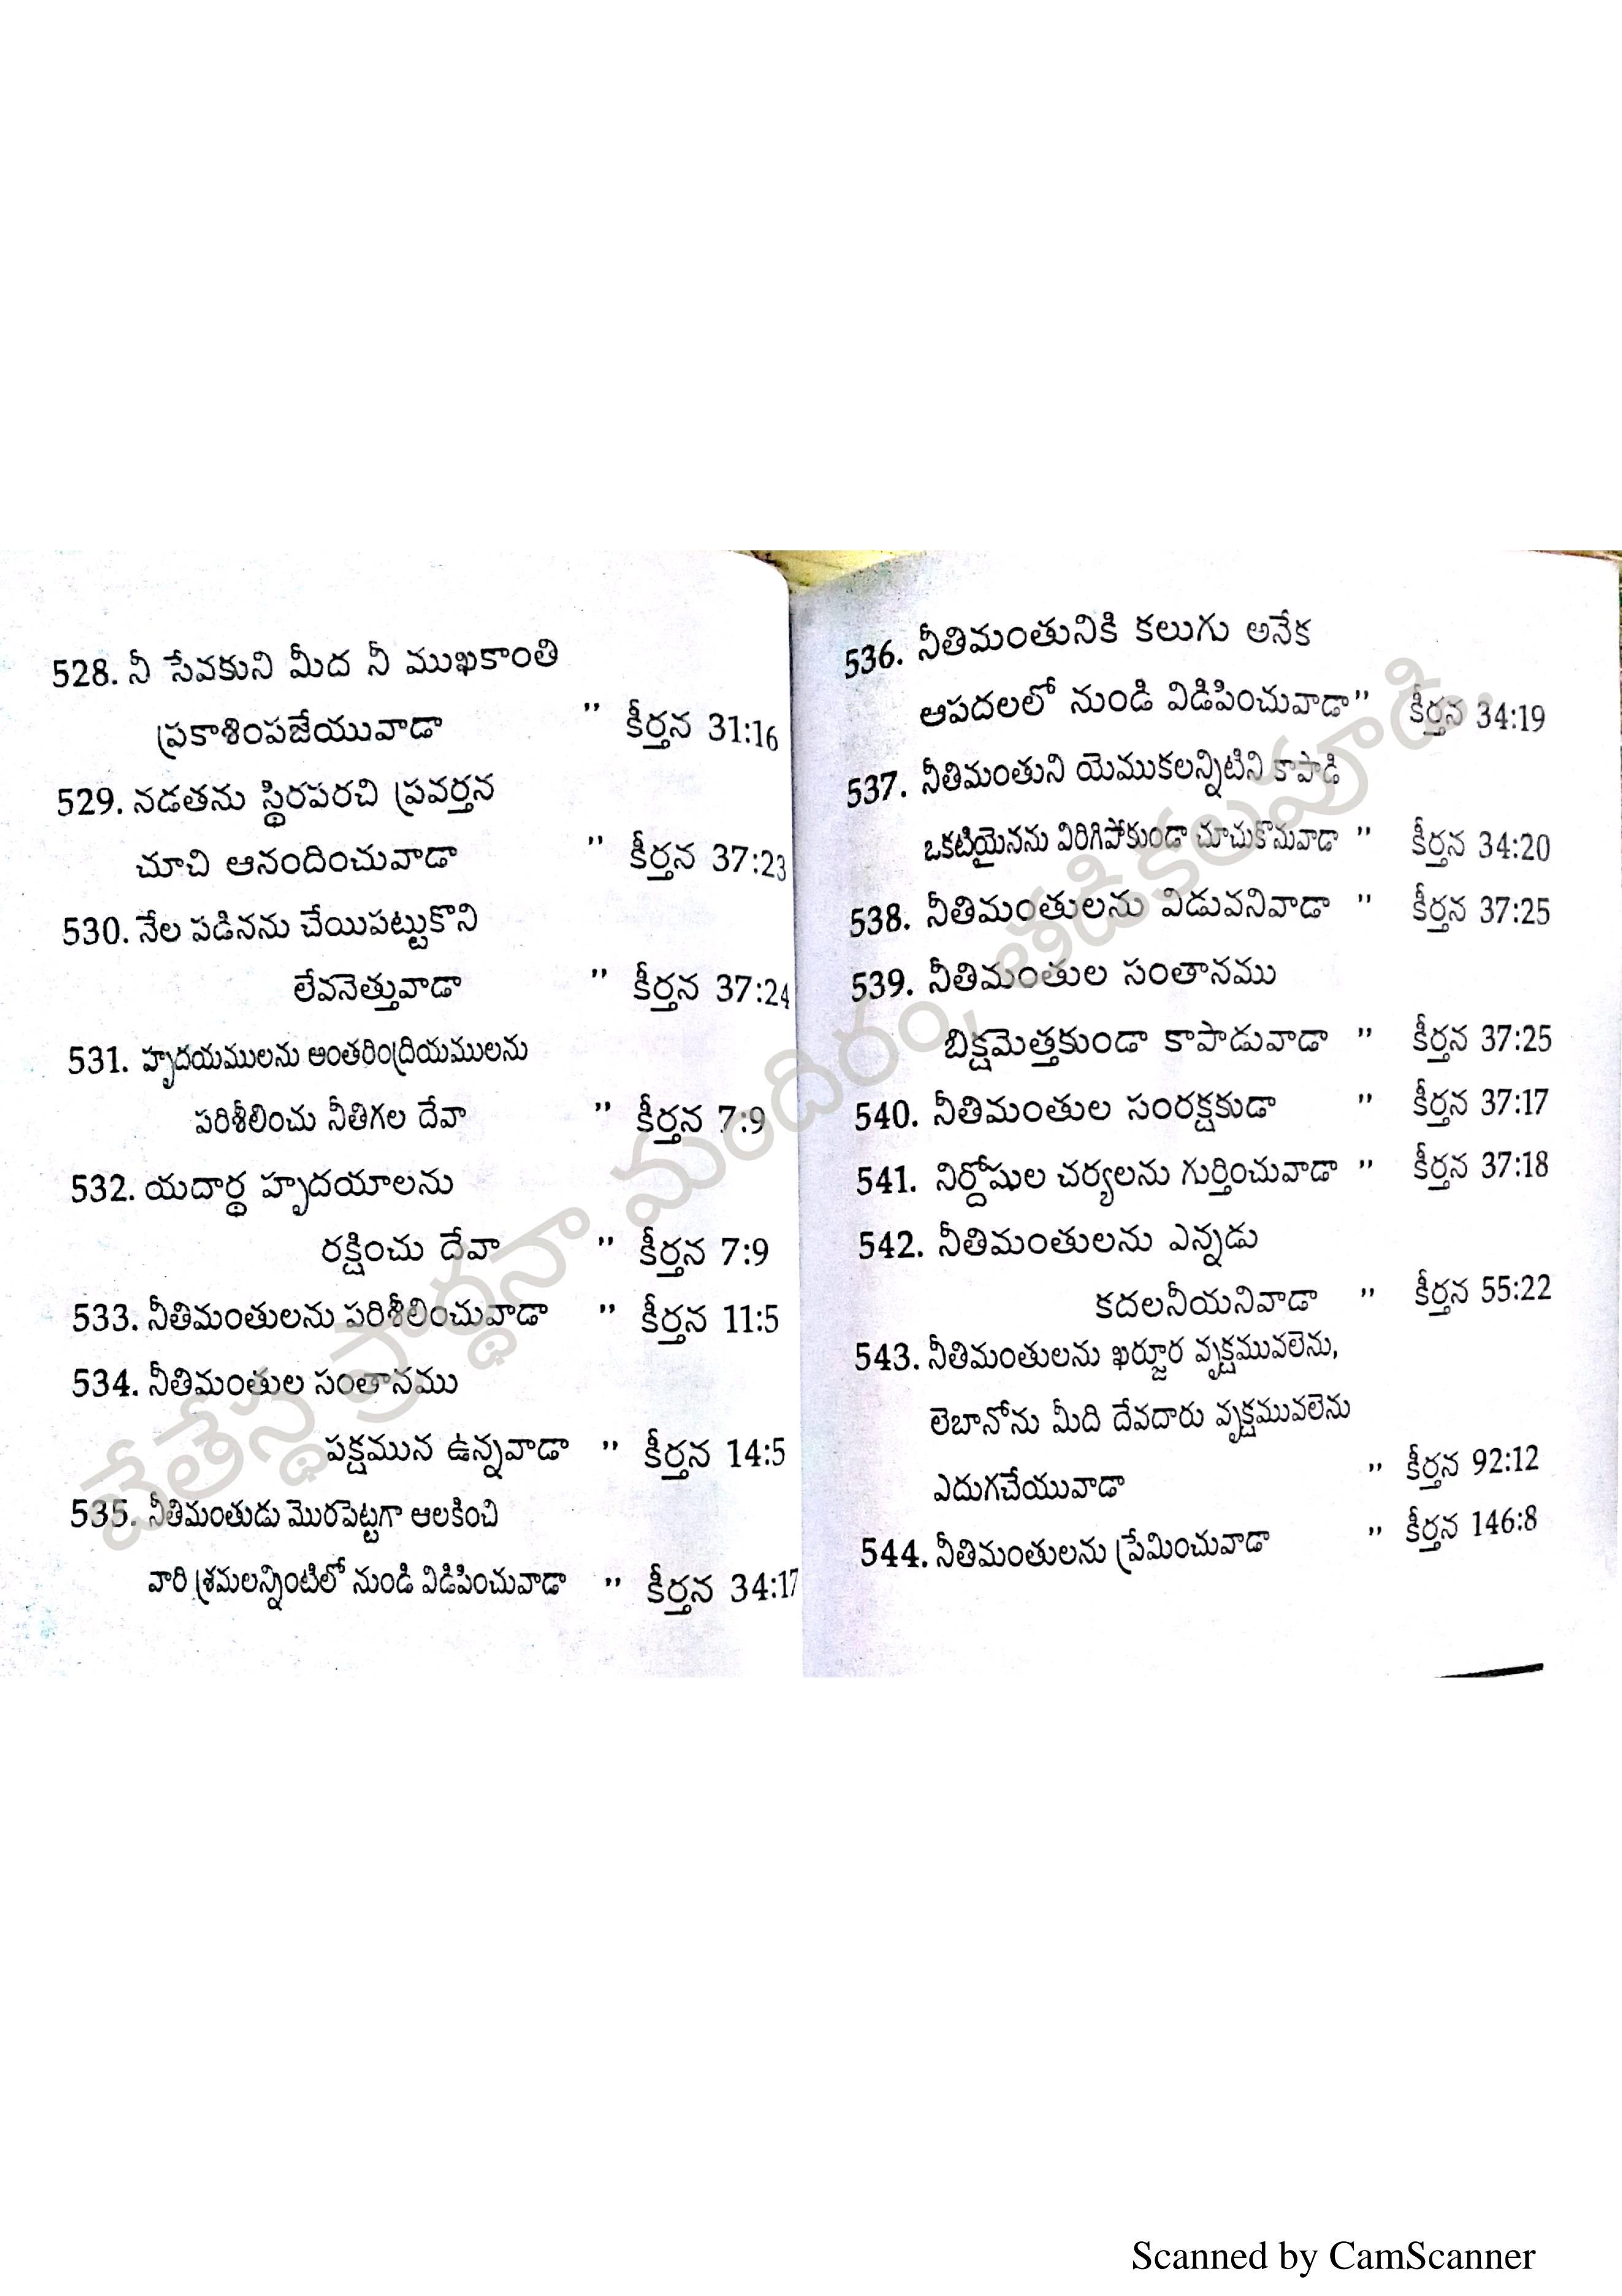 528. నీ సేవకుని మీద నీ ముఖకాంతి
ప్రకాశింపజేయువాడా " కీర్తన 31:16
529. నడతను స్థిరపరచి ప్రవర్తన
చూచి ఆనందించువాడా " కీర్తన 37:23
530. నేల పడినను చేయిపట్టుకొని
లేవనెత్తువాడా " కీర్తన 37:24
531. హృదయములను అంతరింద్రియములను
పరిశీలించు నీతిగల దేవా " కీర్తన 7:9
532. యదార్థ హృదయాలను
రక్షించు దేవా " కీర్తన 7:9
533. నీతిమంతులను పరిశీలించువాడా " కీర్తన 11:5
534. నీతిమంతుల సంతానము
పక్షమున ఉన్నవాడా " కీర్తన 14:5
535. నీతిమంతుడు మొరపెట్టగా ఆలకించి
వారి శ్రమలన్నింటిలో నుండి విడిపించువాడా " కీర్తన 34:17
536. నీతిమంతునికి కలుగు అనేక
ఆపదలలో నుండి విడిపించువాడా " కీర్తన 34:19
537. నీతిమంతుని యెముకలన్నిటిని కాపాడి
ఒకటియైనను విరిగిపోకుండా చూచుకొనువాడా " కీర్తన 34:20
538. నీతిమంతులను విడువనివాడా " కీర్తన 37:25
539. నీతిమంతుల సంతానము
బిక్షమెత్తకుండా కాపాడువాడా " కీర్తన 37:25
540. నీతిమంతుల సంరక్షకుడా " కీర్తన 37:17
541. నిర్దోషుల చర్యలను గుర్తించువాడా " కీర్తన 37:18
542. నీతిమంతులను ఎన్నడు
కదలనీయనివాడా " కీర్తన 55:22
543. నీతిమంతులను ఖర్జూర వృక్షమువలెను,
లెబానోను మీది దేవదారు వృక్షమువలెను
ఎదుగచేయువాడా " కీర్తన 92:12
544. నీతిమంతులను ప్రేమించువాడా " కీర్తన 146:8
బేతేస్థ ప్రార్థనా మందిరం, తాడికలపూడి.
Scanned by CamScanner